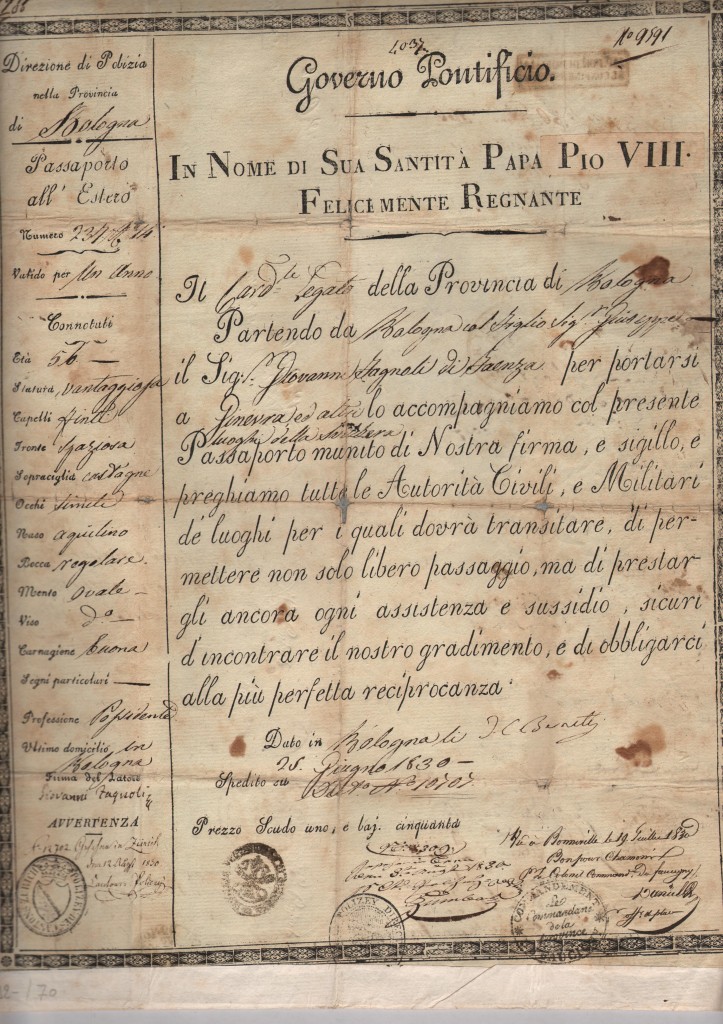 4037.
Nº 9591
Governo Pontificio.
IN NOME DI SUA SANTITÀ PAPA PIO VIII.
FELICEMENTE REGNANTE
Direzione di Polizia
nella Provincia
di Bologna
Passaporto
all' Estero
Numero
Valido per Un Anno
Connotati
Età 56
Statura vantaggiosa
Capelli
Fronte spaziosa
Sopraciglia castagne
Occhi simili
Naso aquilino
Bocca regolare
Mento ovale
Viso do
Carnagione buona
Segni particolari
Professione Possidente
Ultimo domicilio in
Bologna
Firma del Latore
Giovanni
AVVERTENZA
in Zürich
1830
Il Card.le Legato della Provincia di Bologna
Partendo da Bologna col Figlio Sig.r Giuseppe
il Sig.r Giovanni di Faenza per portarsi
a Ginevra ed altri lo accompagniamo col presente
luoghi della Svizzera
Passaporto munito di Nostra firma, e sigillo, e
preghiamo tutte le Autorità Civili, e Militari
de luoghi per i quali dovrà transitare, di per-
mettere non solo libero passaggio, ma di prestar-
gli ancora ogni assistenza e sussidio, sicuri
d'incontrare il nostro gradimento, e di obbligarci
alla più perfetta reciprocanza.
Dato in Bologna li
25 Giugno 1830
Spedito su
Prezzo Scudo uno, e baj. cinquanta
à Bonneville le 19 Juillet 1830
Bon pour Chamonix
COMMANDEMENT
Le
Commandant
de la
Province